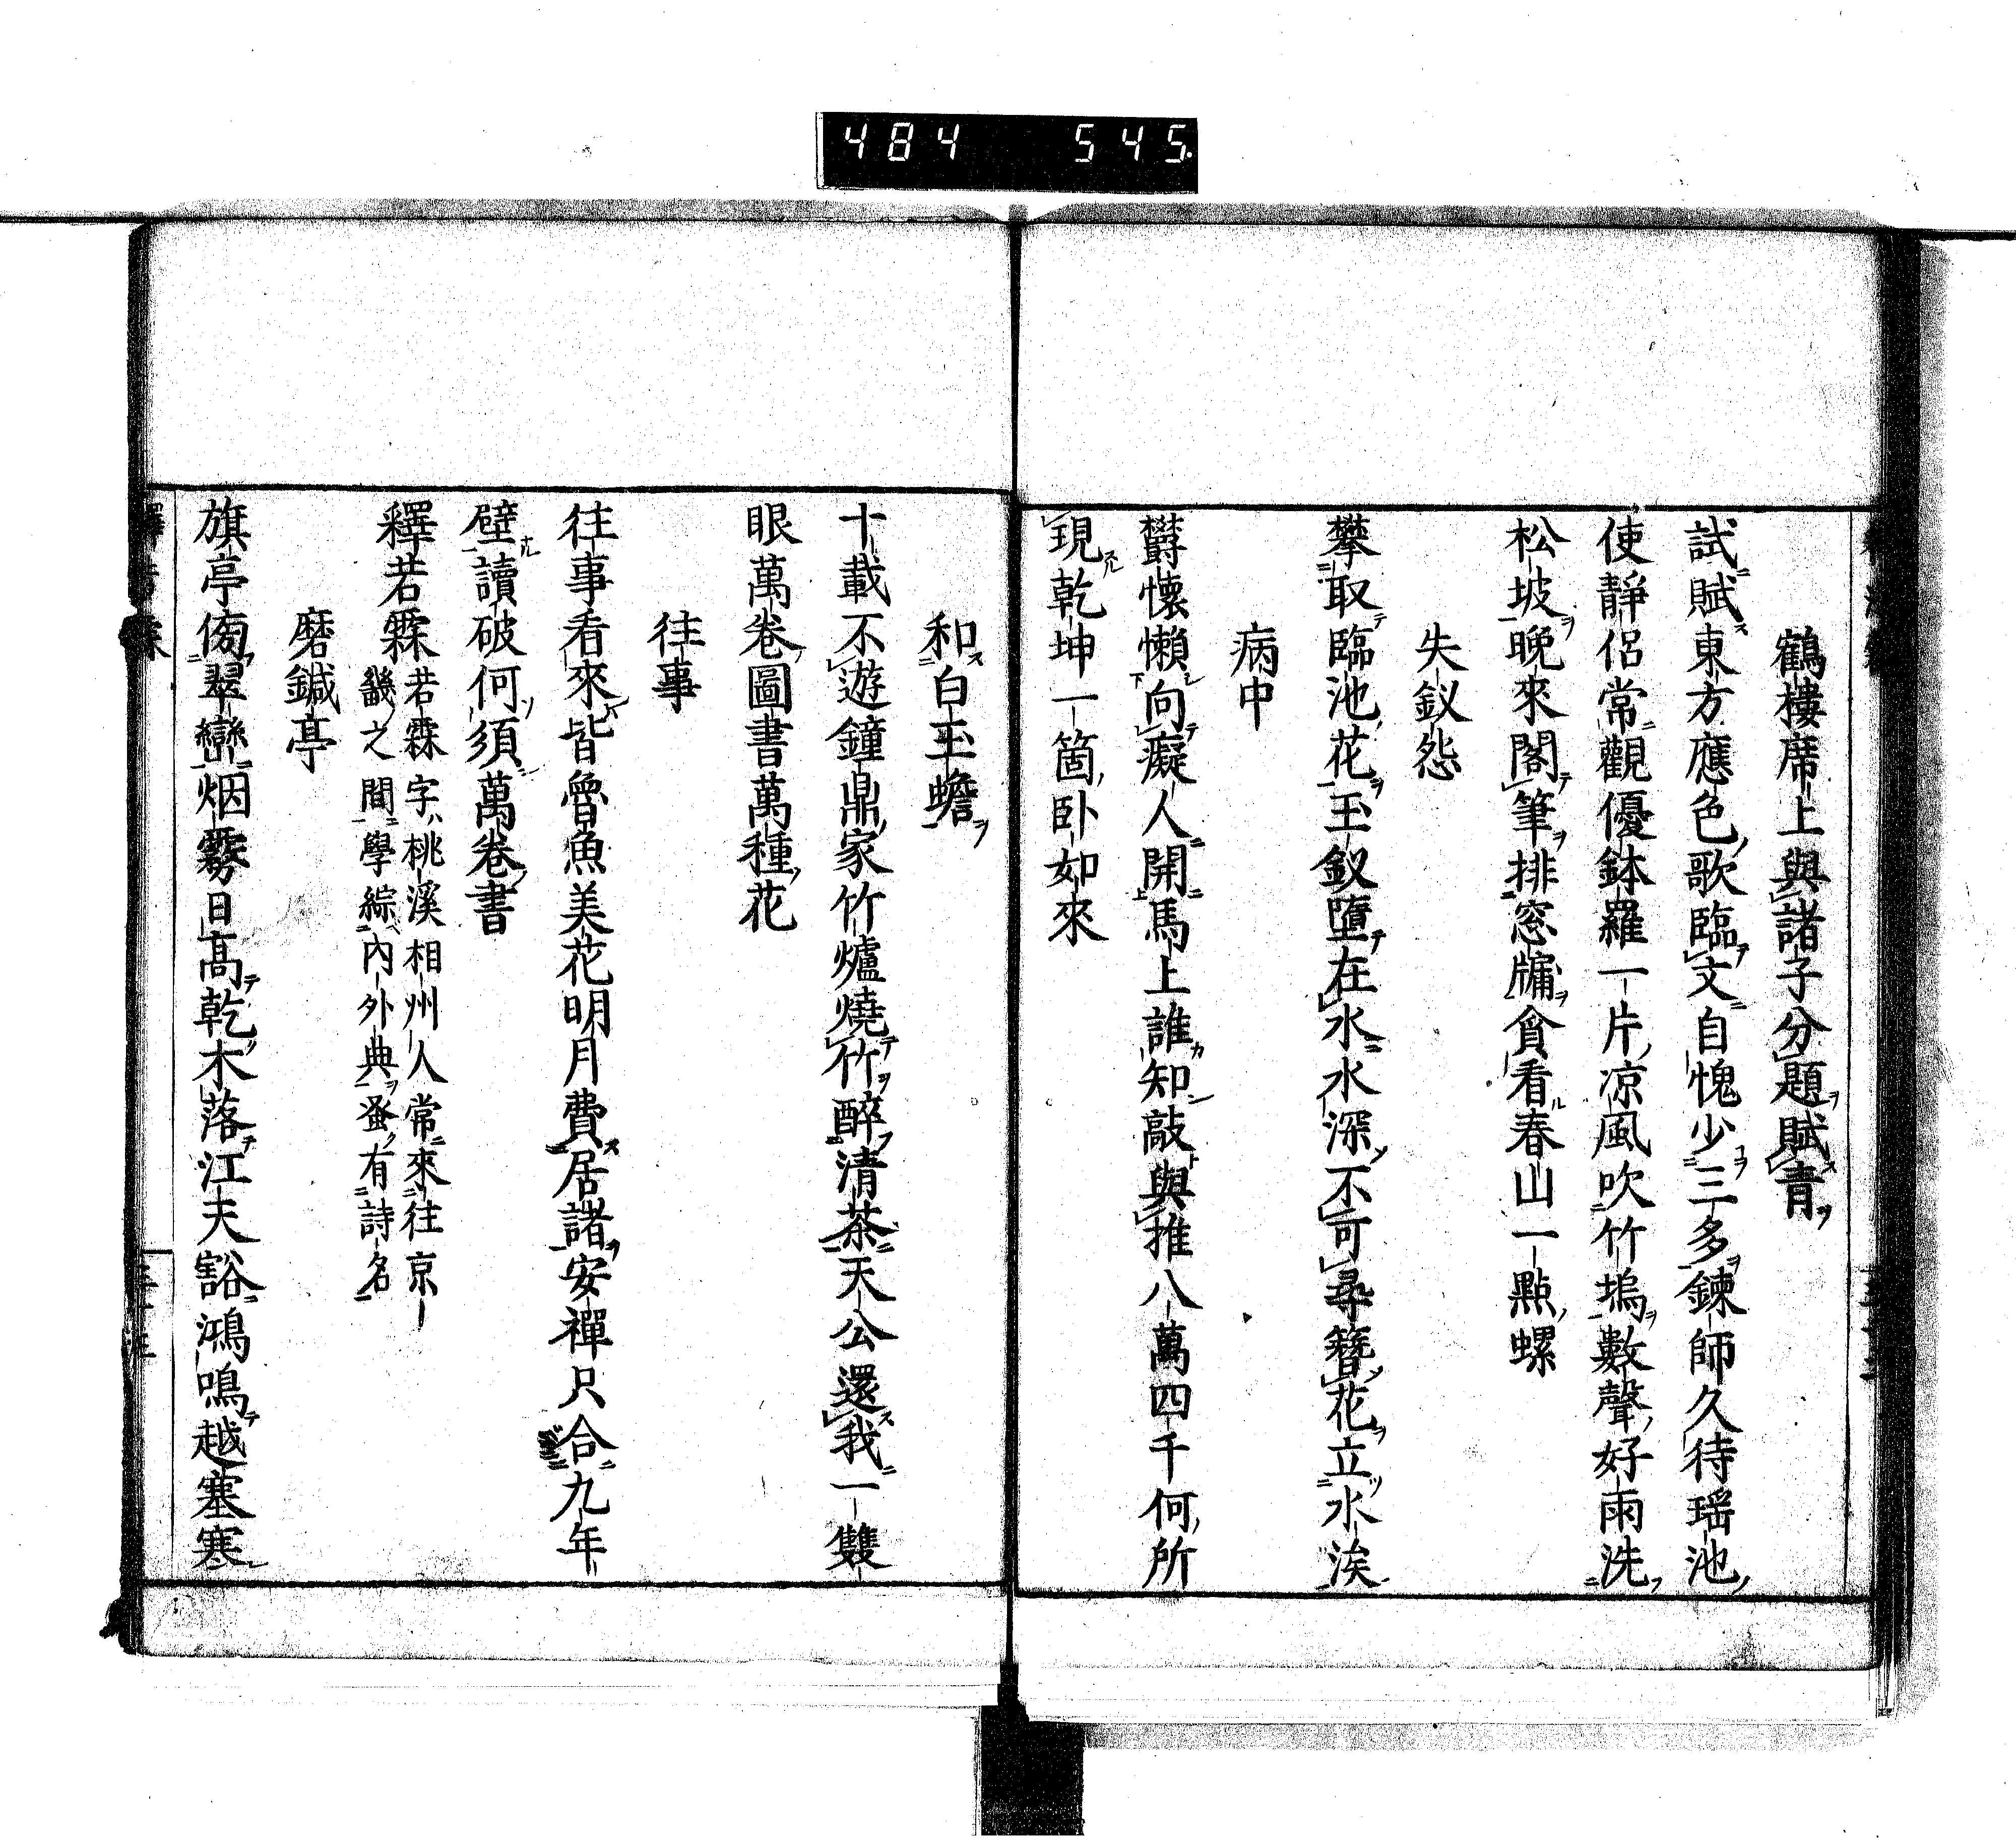 484 545
鶴樓席上與諸子分題賦青
試賦東方應色歌臨文自愧少三多鍊師久待瑶池
使靜侶常觀優鉢羅一片凉風吹竹塢數聲好雨洗
松坡晚來閣筆排窓牗貪看春山一點螺
失釵怨
攀取臨池花玉釵墮在水水深不可尋簪花立水涘
病中
欝懷懶向癡人開馬上誰知敲與推八萬四千何所
現乾坤一箇卧如來
和白玉蟾
十載不遊鐘鼎家竹爐燒竹醉清茶天公還我一雙
眼萬卷圖書萬種花
往事
往事看來皆魯魚美花明月費居諸安禪只合九年
壁讀破何須萬卷書
釋若霖若霖字桃溪相州人常來往京
畿之間學綜內外典蚤有詩名
磨鍼亭
旗亭傍翠巒烟霧日高乾木落江天豁鴻鳴越塞寒